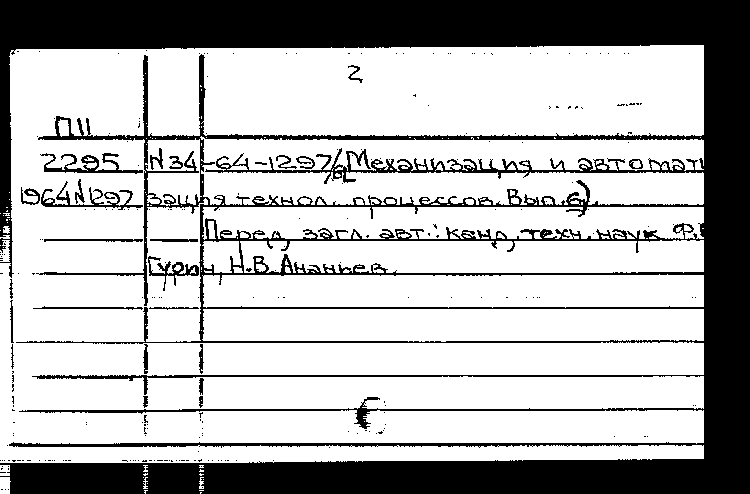 2
П11
2295 N34-64-1297/6 Механизация и автомати
1964N1297 зация технол. процессов. Вып.6).
Перед загл. авт.: канд. техн. наук Ф.
Гурин, Н.В. Ананьев.